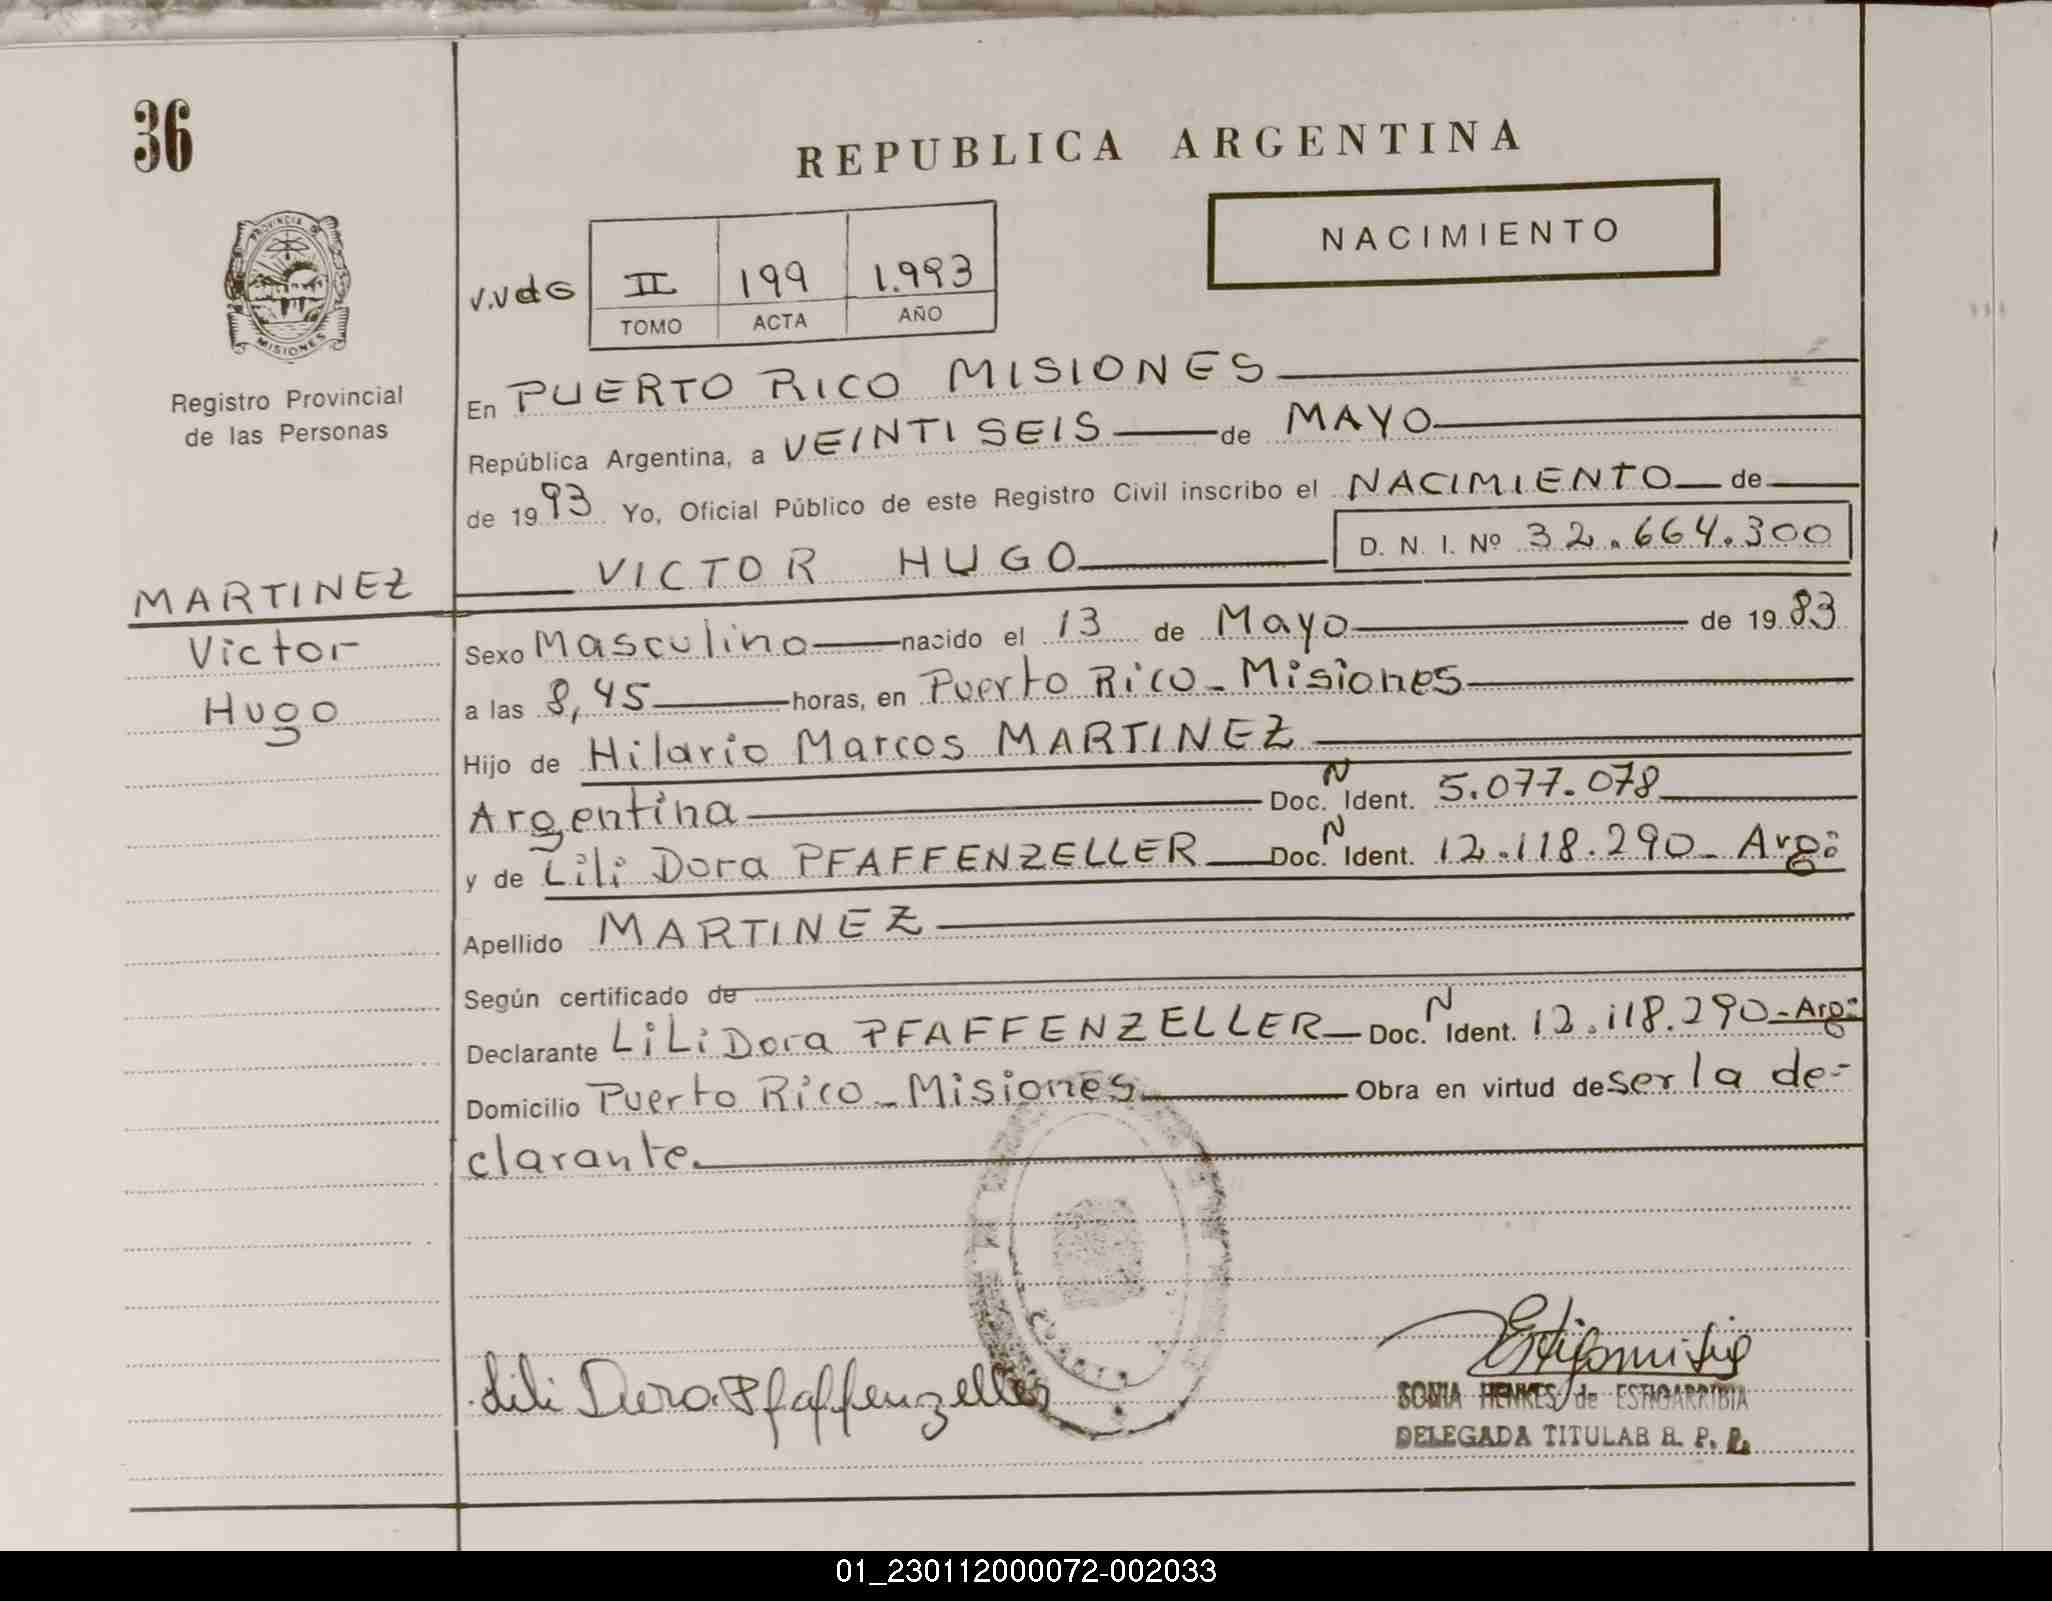 36
REPUBLICA ARGENTINA
NACIMIENTO
V.V de G
II 199 1.993
TOMO ACTA AÑO
PROVINCIA DE
MISIONES
Registro Provincial
de las Personas
En PUERTO RICO MISIONES
República Argentina, a VEINTISEIS de MAYO
de 1993 Yo, Oficial Público de este Registro Civil inscribo el NACIMIENTO de
VICTOR HUGO D. N. I. Nº 32.664.300
MARTINEZ
Victor
Hugo
Sexo Masculino nacido el 13 de Mayo de 1983
a las 8,45 horas, en Puerto Rico - Misiones
Hijo de Hilario Marcos MARTINEZ
Argentina Doc. N Ident. 5.077.078
y de Lili Dora PFAFFENZELLER Doc. N Ident. 12.118.290 - Arg:
Apellido MARTINEZ
Según certificado de
Declarante LiLi Dora PFAFFENZELLER - Doc. N Ident. 12.118.290 - Arg:
Domicilio Puerto Rico - Misiones Obra en virtud de ser la de-
clarante.
Lili Dora Pfaffenzeller
SONIA HENKES de ESTIGARRIBIA
DELEGADA TITULAR R. P. P.
01_230112000072-002033